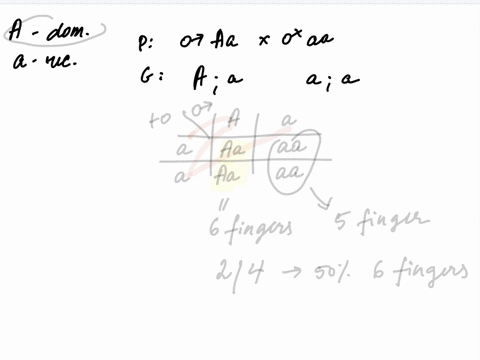 A - dom.
a - rec.
P: ♂ Aa × ♀ aa
G: A ; a a ; a
♀ ♂ A a
a Aa aa
a Aa aa
"
6 fingers 5 finger
2/4 → 50% 6 fingers